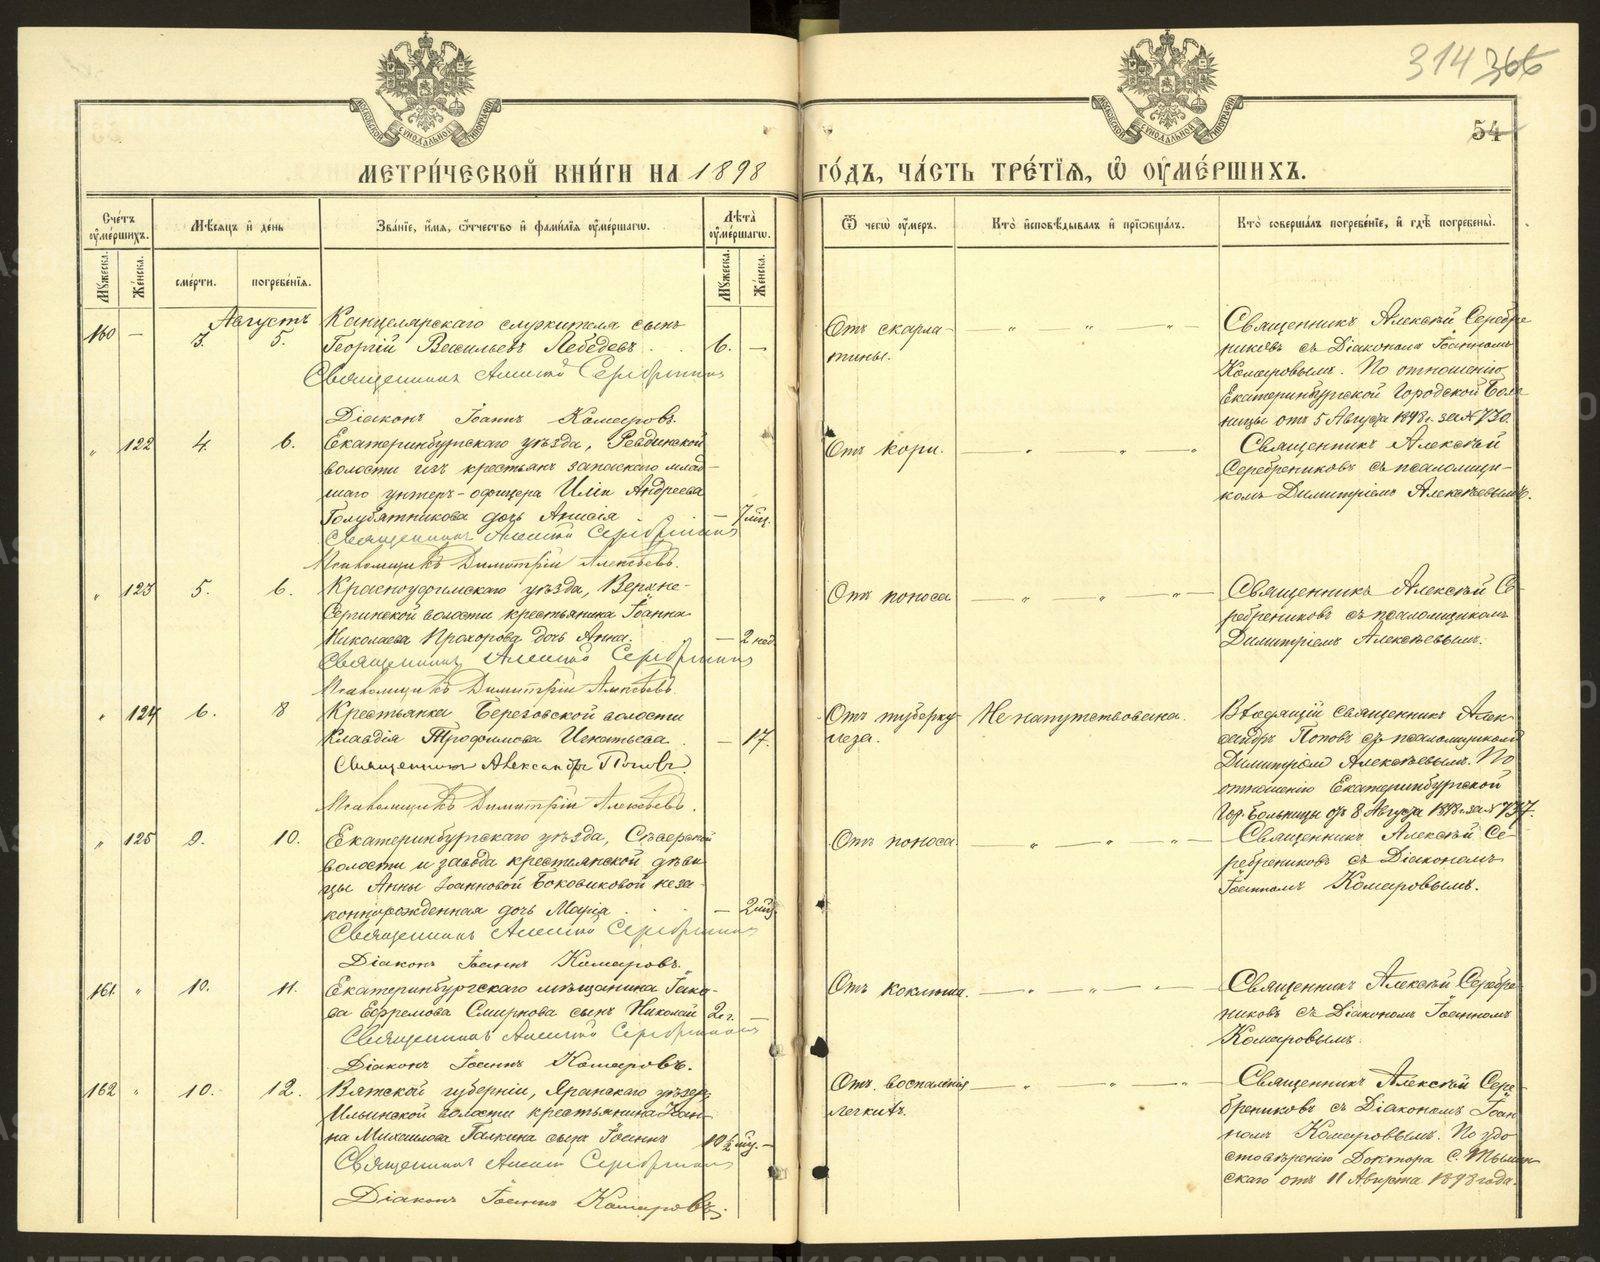 314 366
54
МЕТРИ́ЧЕСКОЙ КНИ́ГИ НА 1898 ГО́ДЪ, ЧА́СТЬ ТРЕ́ТІЯ, Ѽ ОУ҆МЕ́РШИХЪ.
Сче́тъ оу҆ме́ршихъ.
Мꙋ́жеска.
Же́нска.
Мѣ́сяцъ и҆ де́нь
сме́рти.
погребе́нія.
Зва́ніе, и҆́мя, ѻ҆́тчество и҆ фами́лія оу҆ме́ршагѡ.
Лѣ́та оу҆ме́ршагѡ.
Мꙋ́жеска.
Же́нска.
Ѿ чегѡ̀ оу҆́меръ.
Кто̀ и҆сповѣ́дывалъ и҆ прїѡбща́лъ.
Кто̀ соверша́лъ погребе́ніе, и҆ гдѣ̀ погребены̀.
Августъ
160 — 3. 5.
Канцелярскаго служителя сынъ
Георгій Васильевъ Лебедевъ . . 6. —
Священникъ Алексѣй Серебрениковъ
Діаконъ Іоаннъ Комаровъ.
Отъ скарла-
тины.
Священникъ Алексѣй Серебре
никовъ съ Діакономъ Іоанномъ
Комаровымъ. По отношенію
Екатеринбургской Городской Боль
ницы отъ 5 Августа 1898 г. за № 730.
„ 122 4. 6.
Екатеринбургскаго уѣзда, Ревдинской
волости изъ крестьянъ запаснаго млад-
шаго унтеръ-офицера Иліи Андреева
Голубятникова дочь Анисія — 7 мѣц.
Священникъ Алексѣй Серебрениковъ
Псаломщикъ Димитрій Алексѣевъ.
Отъ кори.
Священникъ Алексѣй
Серебрениковъ съ псаломщи-
комъ Димитріемъ Алексѣевымъ.
„ 123 5. 6.
Красноуфимскаго уѣзда, Верхне-
Сергинской волости крестьянина Іоанна
Николаева Прохорова дочь Анна. — 2 нед.
Священникъ Алексѣй Серебрениковъ
Псаломщикъ Димитрій Алексѣевъ.
Отъ поноса
Священникъ Алексѣй Се-
ребрениковъ съ псаломщикомъ
Димитріемъ Алексѣевымъ.
„ 124 6. 8
Крестьянка Березовской волости
Клавдія Трофимова Игнатьева — 17.
Священникъ Александръ Поповъ.
Псаломщикъ Димитрій Алексѣевъ.
Отъ туберку-
леза.
Не напутствована.
священникъ Алек
сандръ Поповъ съ псаломщикомъ
Димитріем Алексѣевымъ. По
отношенію Екатеринбургской
Гор. Больницы отъ 8 Августа 1898 г. за № 737.
„ 125 9. 10.
Екатеринбургскаго уѣзда, Сѣверской
волости и завода крестьянской дѣви
цы Анны Іоанновой Боковиковой неза-
коннорожденная дочь Марія — 2 мѣц.
Священникъ Алексѣй Серебрениковъ
Діаконъ Іоаннъ Комаровъ.
Отъ поноса
Священникъ Алексѣй Се-
ребрениковъ съ Діакономъ
Іоанномъ Комаровымъ.
161. „ 10. 11.
Екатеринбургскаго мѣщанина Іако-
ва Ефремова Смирнова сынъ Николай 2 г. —
Священникъ Алексѣй Серебрениковъ
Діаконъ Іоаннъ Комаровъ.
Отъ коклюша.
Священникъ Алексѣй Серебре-
никовъ съ Діакономъ Іоанномъ
Комаровымъ.
162 „ 10. 12.
Вятской губерніи, Яранскаго уѣзда,
Ильинской волости крестьянина Іоан-
на Михаилова Галкина сынъ Іоаннъ 10½ мѣц. —
Священникъ Алексѣй Серебрениковъ
Діаконъ Іоаннъ Комаровъ.
Отъ воспаленія
легкихъ.
Священникъ Алексѣй Сере-
брениковъ съ Діакономъ Іоан
номъ Комаровымъ. По удо
стовѣренію Доктора
скаго отъ 11 Августа 1898 года.